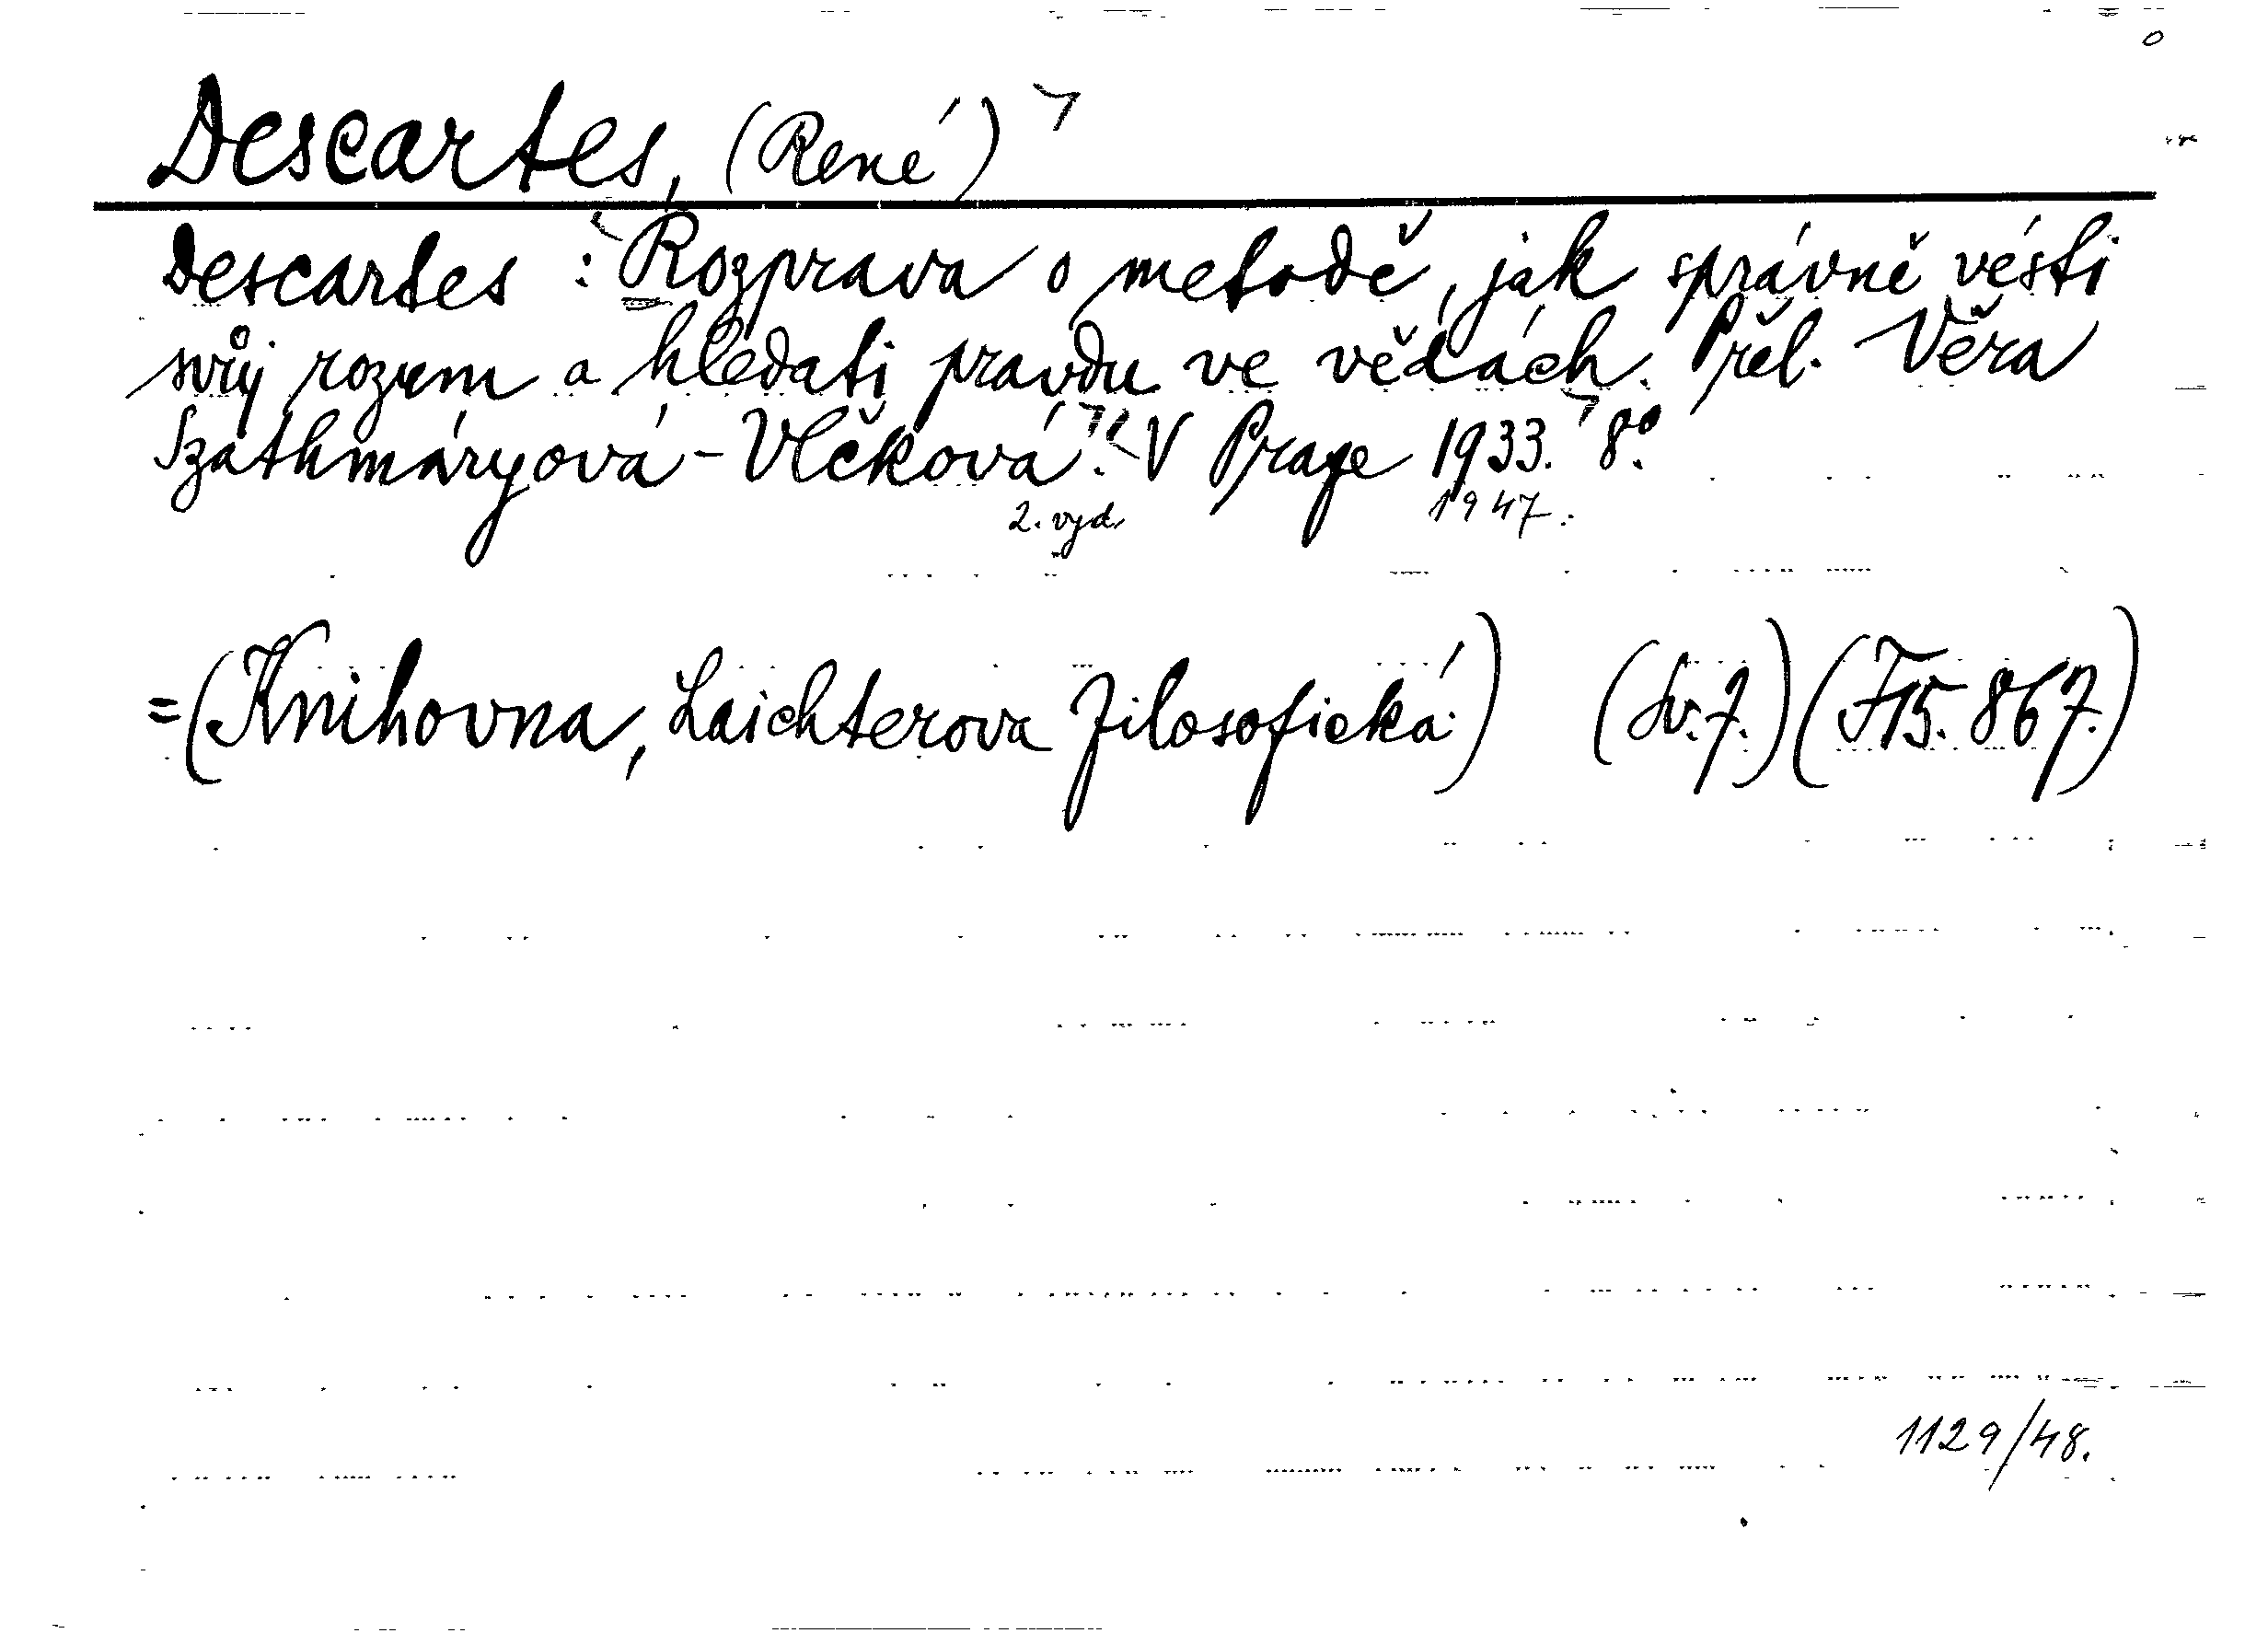 Descartes, (René)
Descartes : Rozprava o metodě, jak správně vésti
svůj rozum a hledati pravdu ve vědách. Přel. Věra
Szathmáryová-Vlčková. V Praze 1933. 8°.
2. vyd. 1947.
=(Knihovna, Laichterova filosofická.) (Sv. 7.) (F 15. 867.)
1129/48.